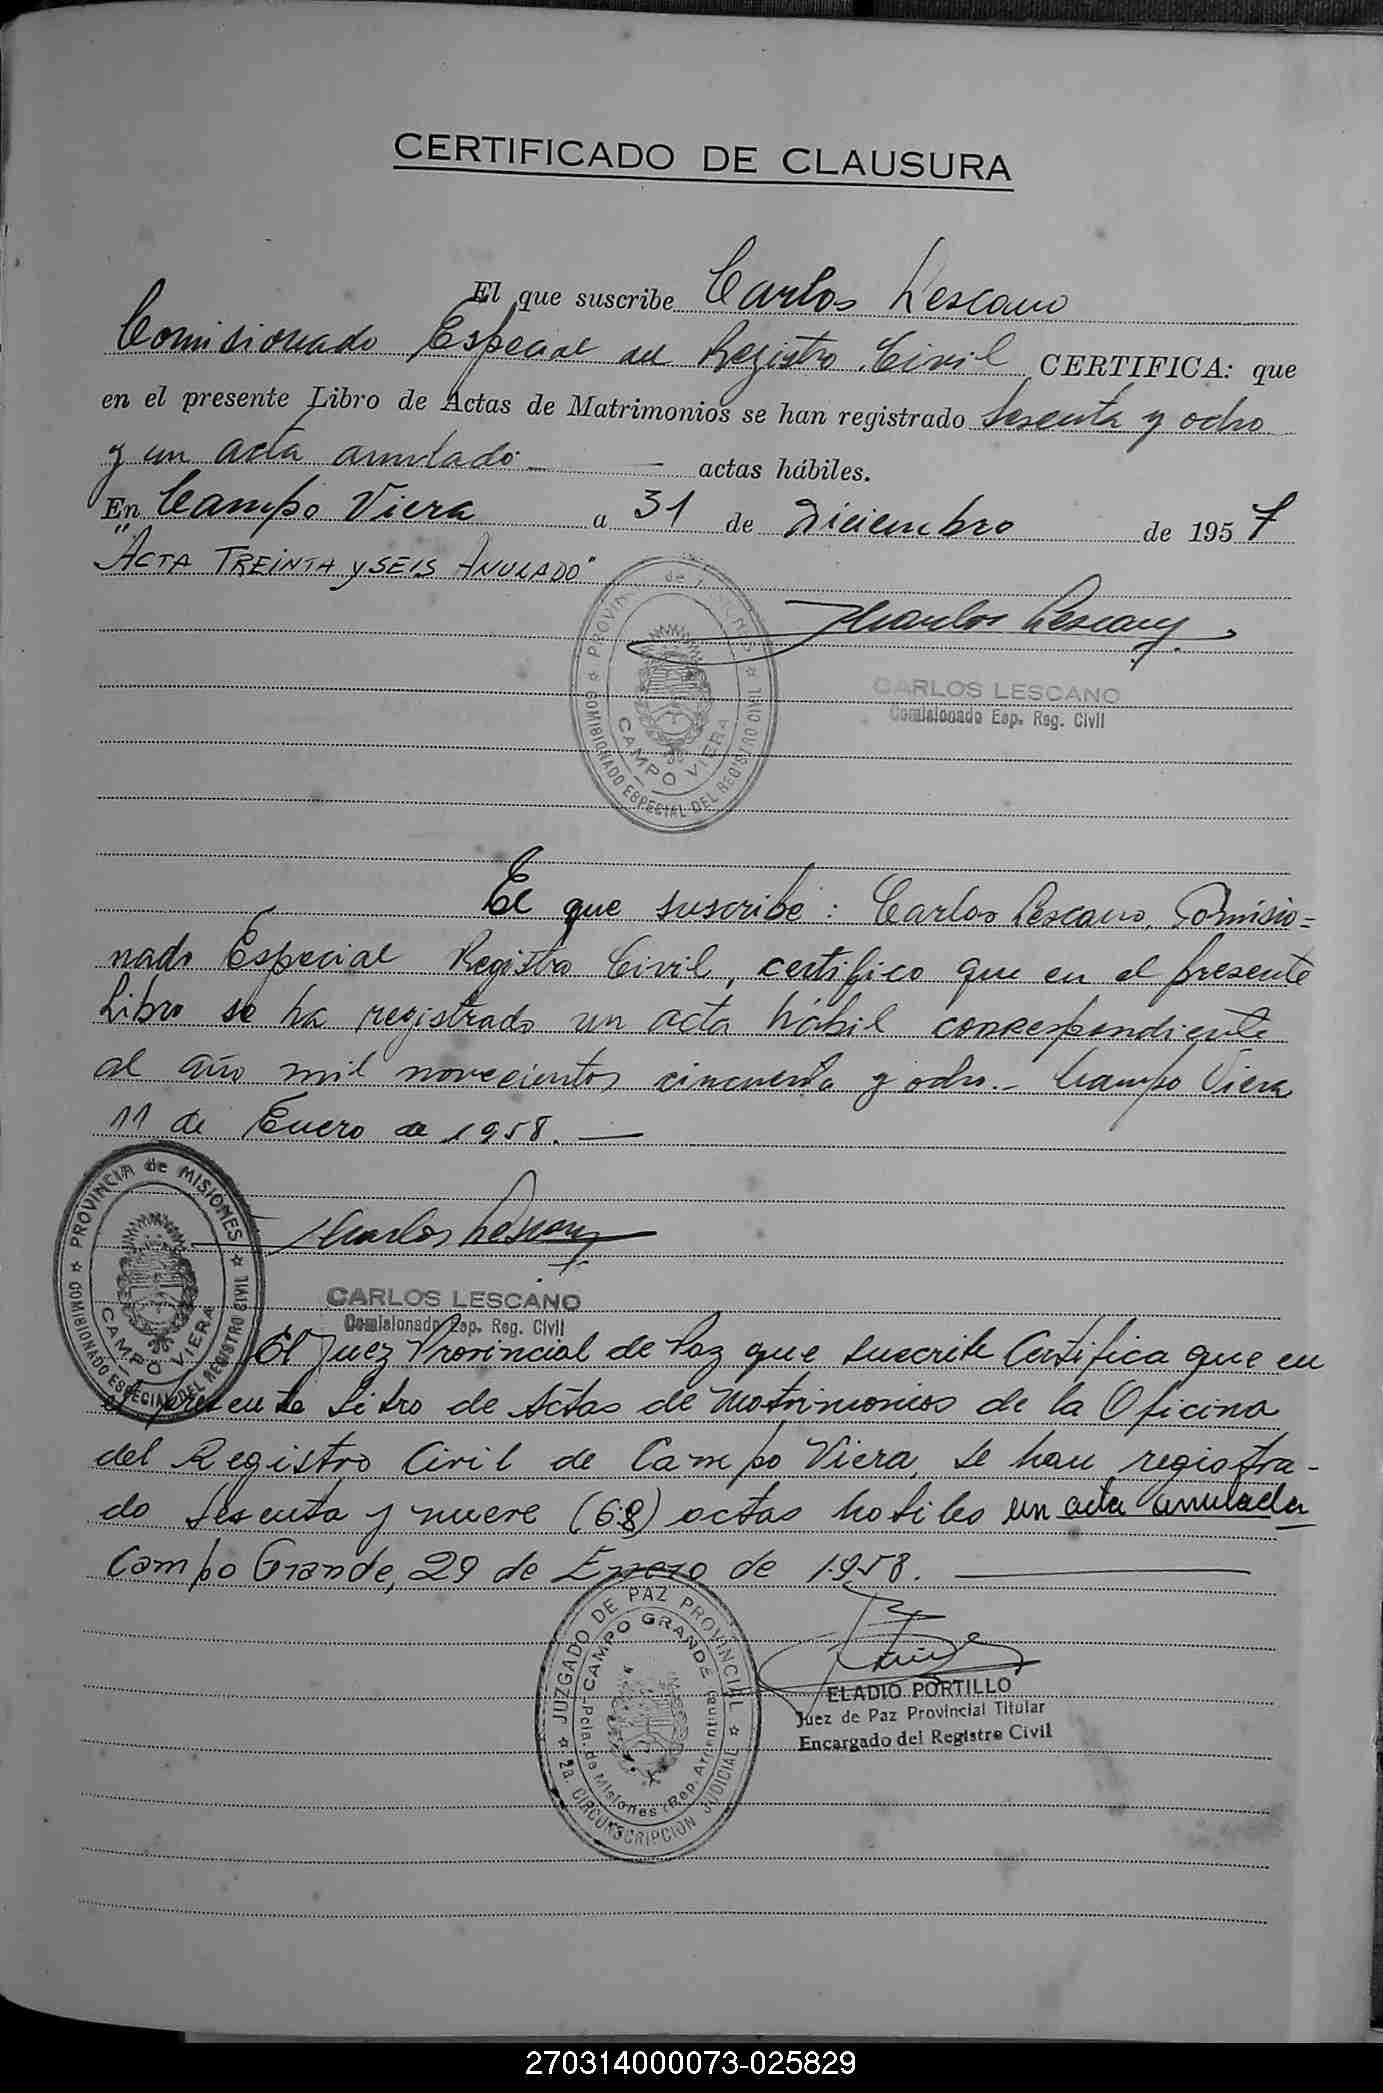 CERTIFICADO DE CLAUSURA
El que suscribe Carlos Lescano
Comisionado Especial del Registro Civil CERTIFICA: que
en el presente Libro de Actas de Matrimonios se han registrado sesenta y ocho
y un acta anulado. — actas hábiles.
En Campo Viera a 31 de Diciembre de 1957
"ACTA TREINTA y SEIS ANULADO"
PROVINCIA de MISIONES
COMISIONADO ESPECIAL DEL REGISTRO CIVIL
CAMPO VIERA
Carlos Lescano
CARLOS LESCANO
Comisionado Esp. Reg. Civil
El que suscribe: Carlos Lescano, Comisio=
nado Especial Registro Civil, certifico que en el presente
Libro se ha registrado un acta hábil correspondiente
al año mil novecientos cincuenta y ocho.- Campo Viera
11 de Enero de 1958. —
PROVINCIA de MISIONES
COMISIONADO ESPECIAL DEL REGISTRO CIVIL
CAMPO VIERA
Carlos Lescano
CARLOS LESCANO
Comisionado Esp. Reg. Civil
El Juez Provincial de Paz que suscribe Certifica que en
el presente Libro de Actas de Matrimonios de la Oficina
del Registro Civil de Campo Viera, se han registra-
do sesenta y nueve (68) actas habiles un acta anulada
Campo Grande, 29 de Enero de 1958. —
JUZGADO DE PAZ PROVINCIAL
CAMPO GRANDE
Pcia. de Misiones (Rep. Argentina)
2a. CIRCUNSCRIPCION JUDICIAL
ELADIO PORTILLO
Juez de Paz Provincial Titular
Encargado del Registro Civil
270314000073-025829